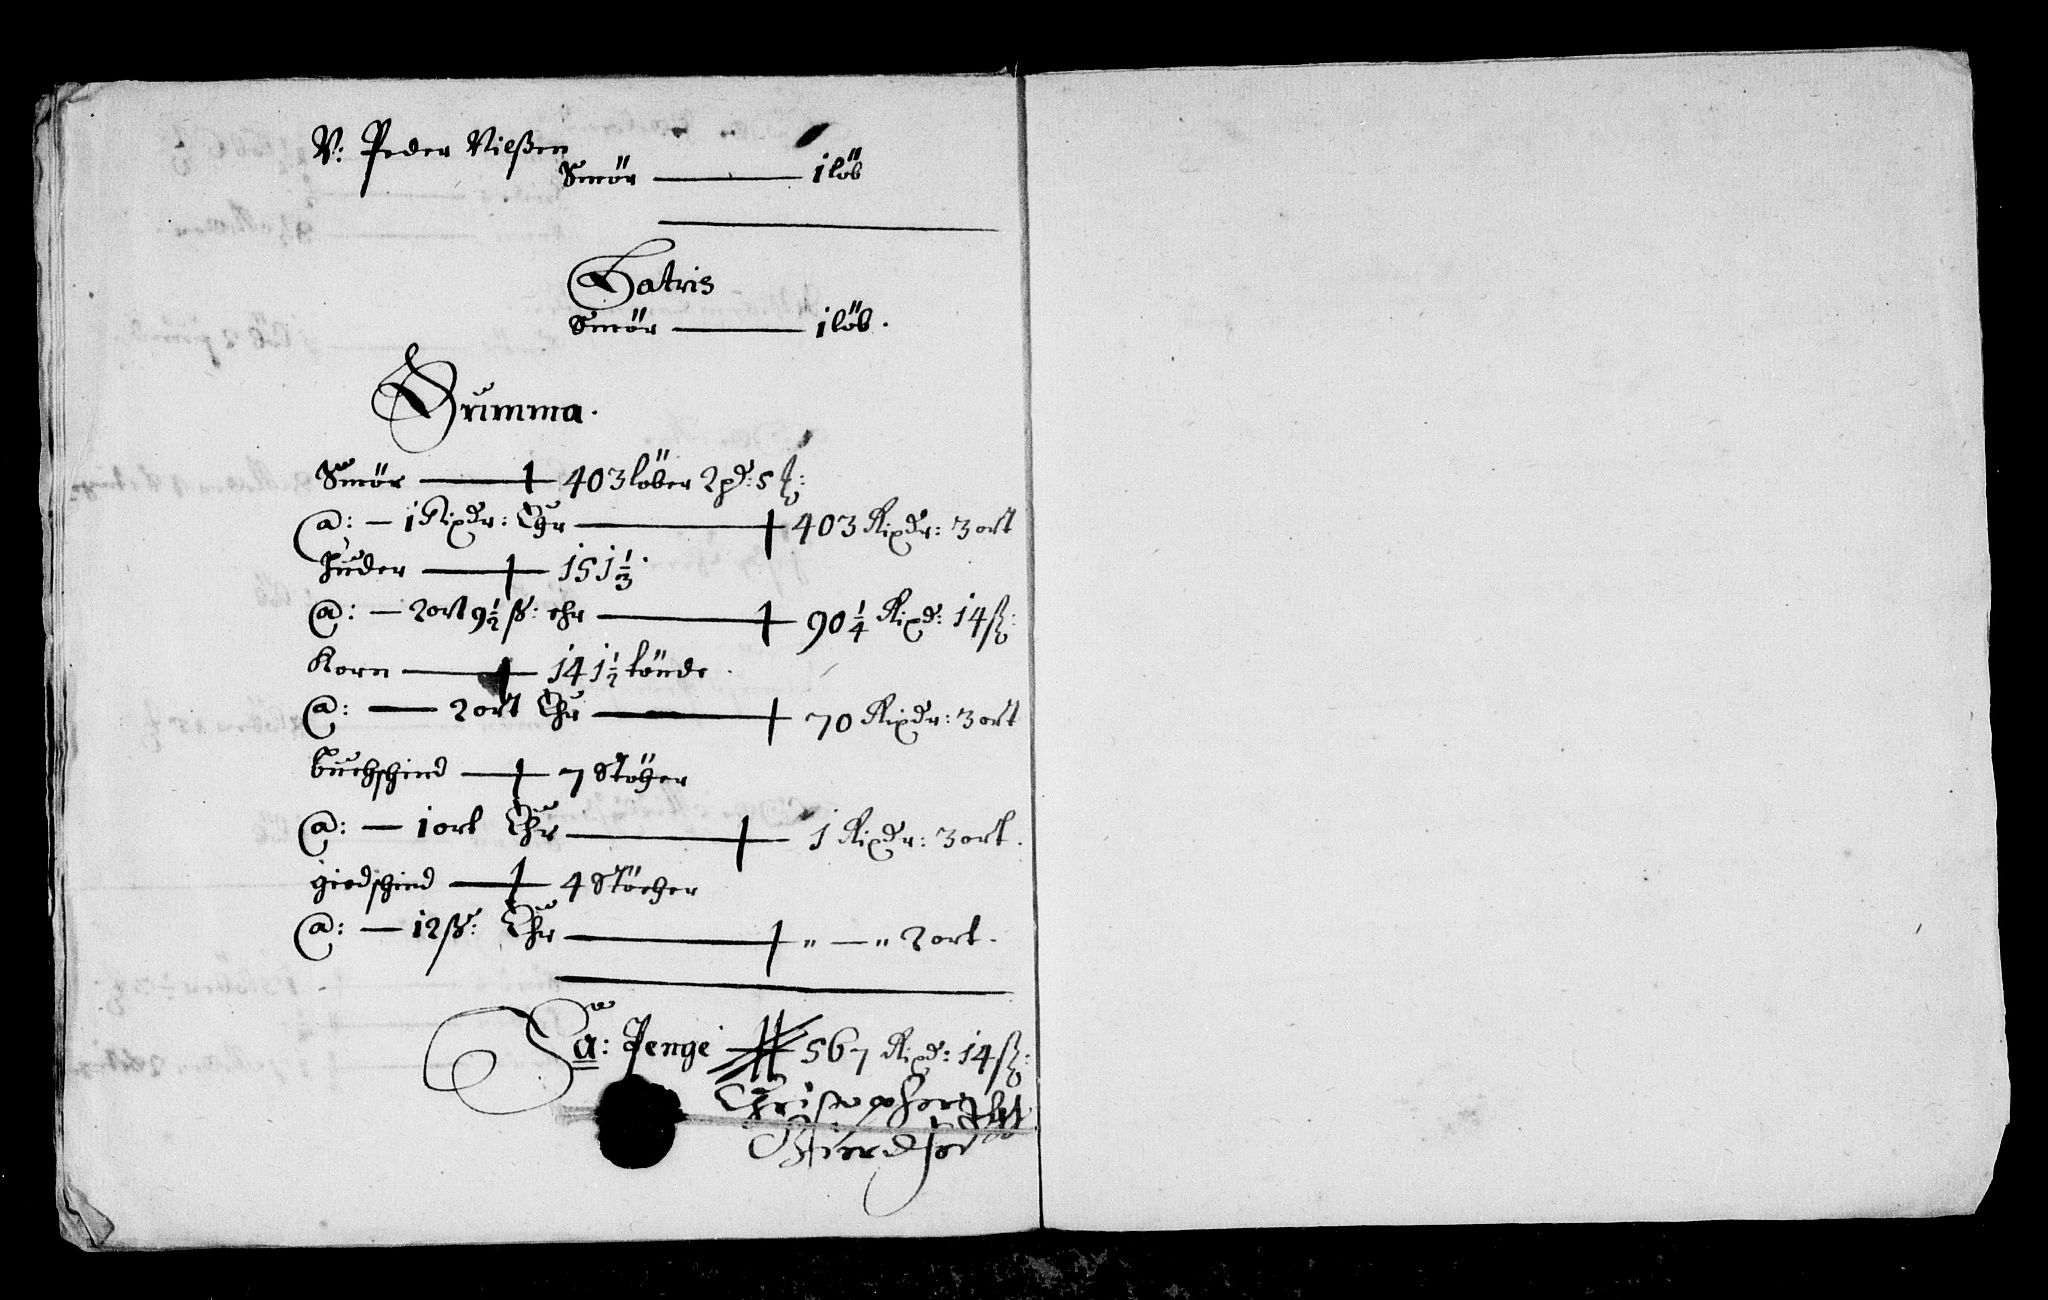 V: Peder Nielßen
Smör — 1 löb
Latris
Smör — 1 löb.
Summa.
Smör — 403 löber 2 pd: 5 ℔:
@: — 1 Rixdr: Ehr — 403 Rixdr: 3 ort
Huder — 151 1/3.
@: — 2 ort 9 1/2 ß: ehr — 90 1/4 Rixd: 14 ß:
Korn — 141 1/2 tönde.
@: — 2 ort Ehr — 70 Rixdr: 3 ort
buchschind — 7 Stöcher
@: — 1 ort Ehr — 1 Rixdr: 3 ort.
giedschind — 4 Stöcher
@: — 12 ß: Ehr — „ — „ 2 ort.
Sa: Penge 567 Rixd: 14 ß:
Christopher
Giordsen